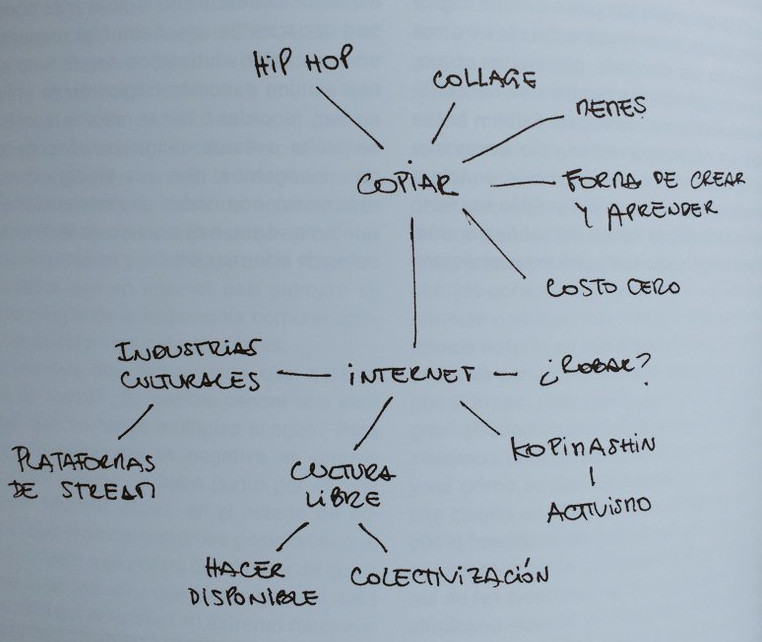 HIP HOP
COLLAGE
MEMES
COPIAR
FORMA DE CREAR
Y APRENDER
COSTO CERO
INDUSTRIAS
CULTURALES
INTERNET
¿ROBAR?
PLATAFORMAS
DE STREAM
CULTURA
LIBRE
KOPIMASHIN
ACTIVISMO
HACER
DISPONIBLE
COLECTIVIZACIÓN